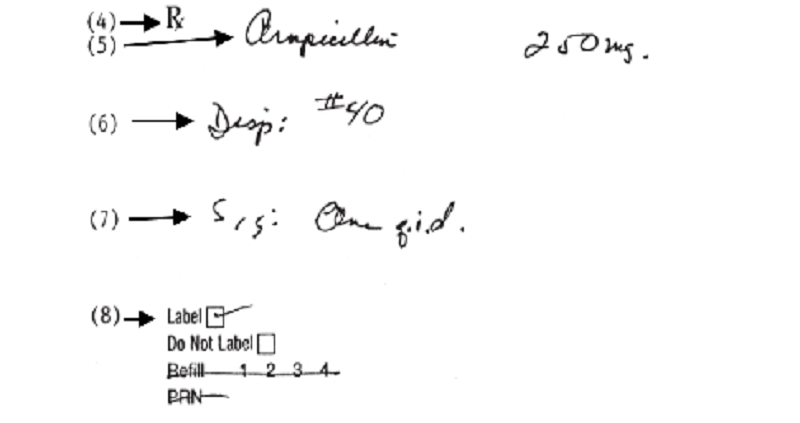 (4) ℞
(5) Ampicillin 250mg.
(6) Disp: #40
(7) Sig: One q.i.d.
(8) Label
Do Not Label
Refill 1 2 3 4
PRN